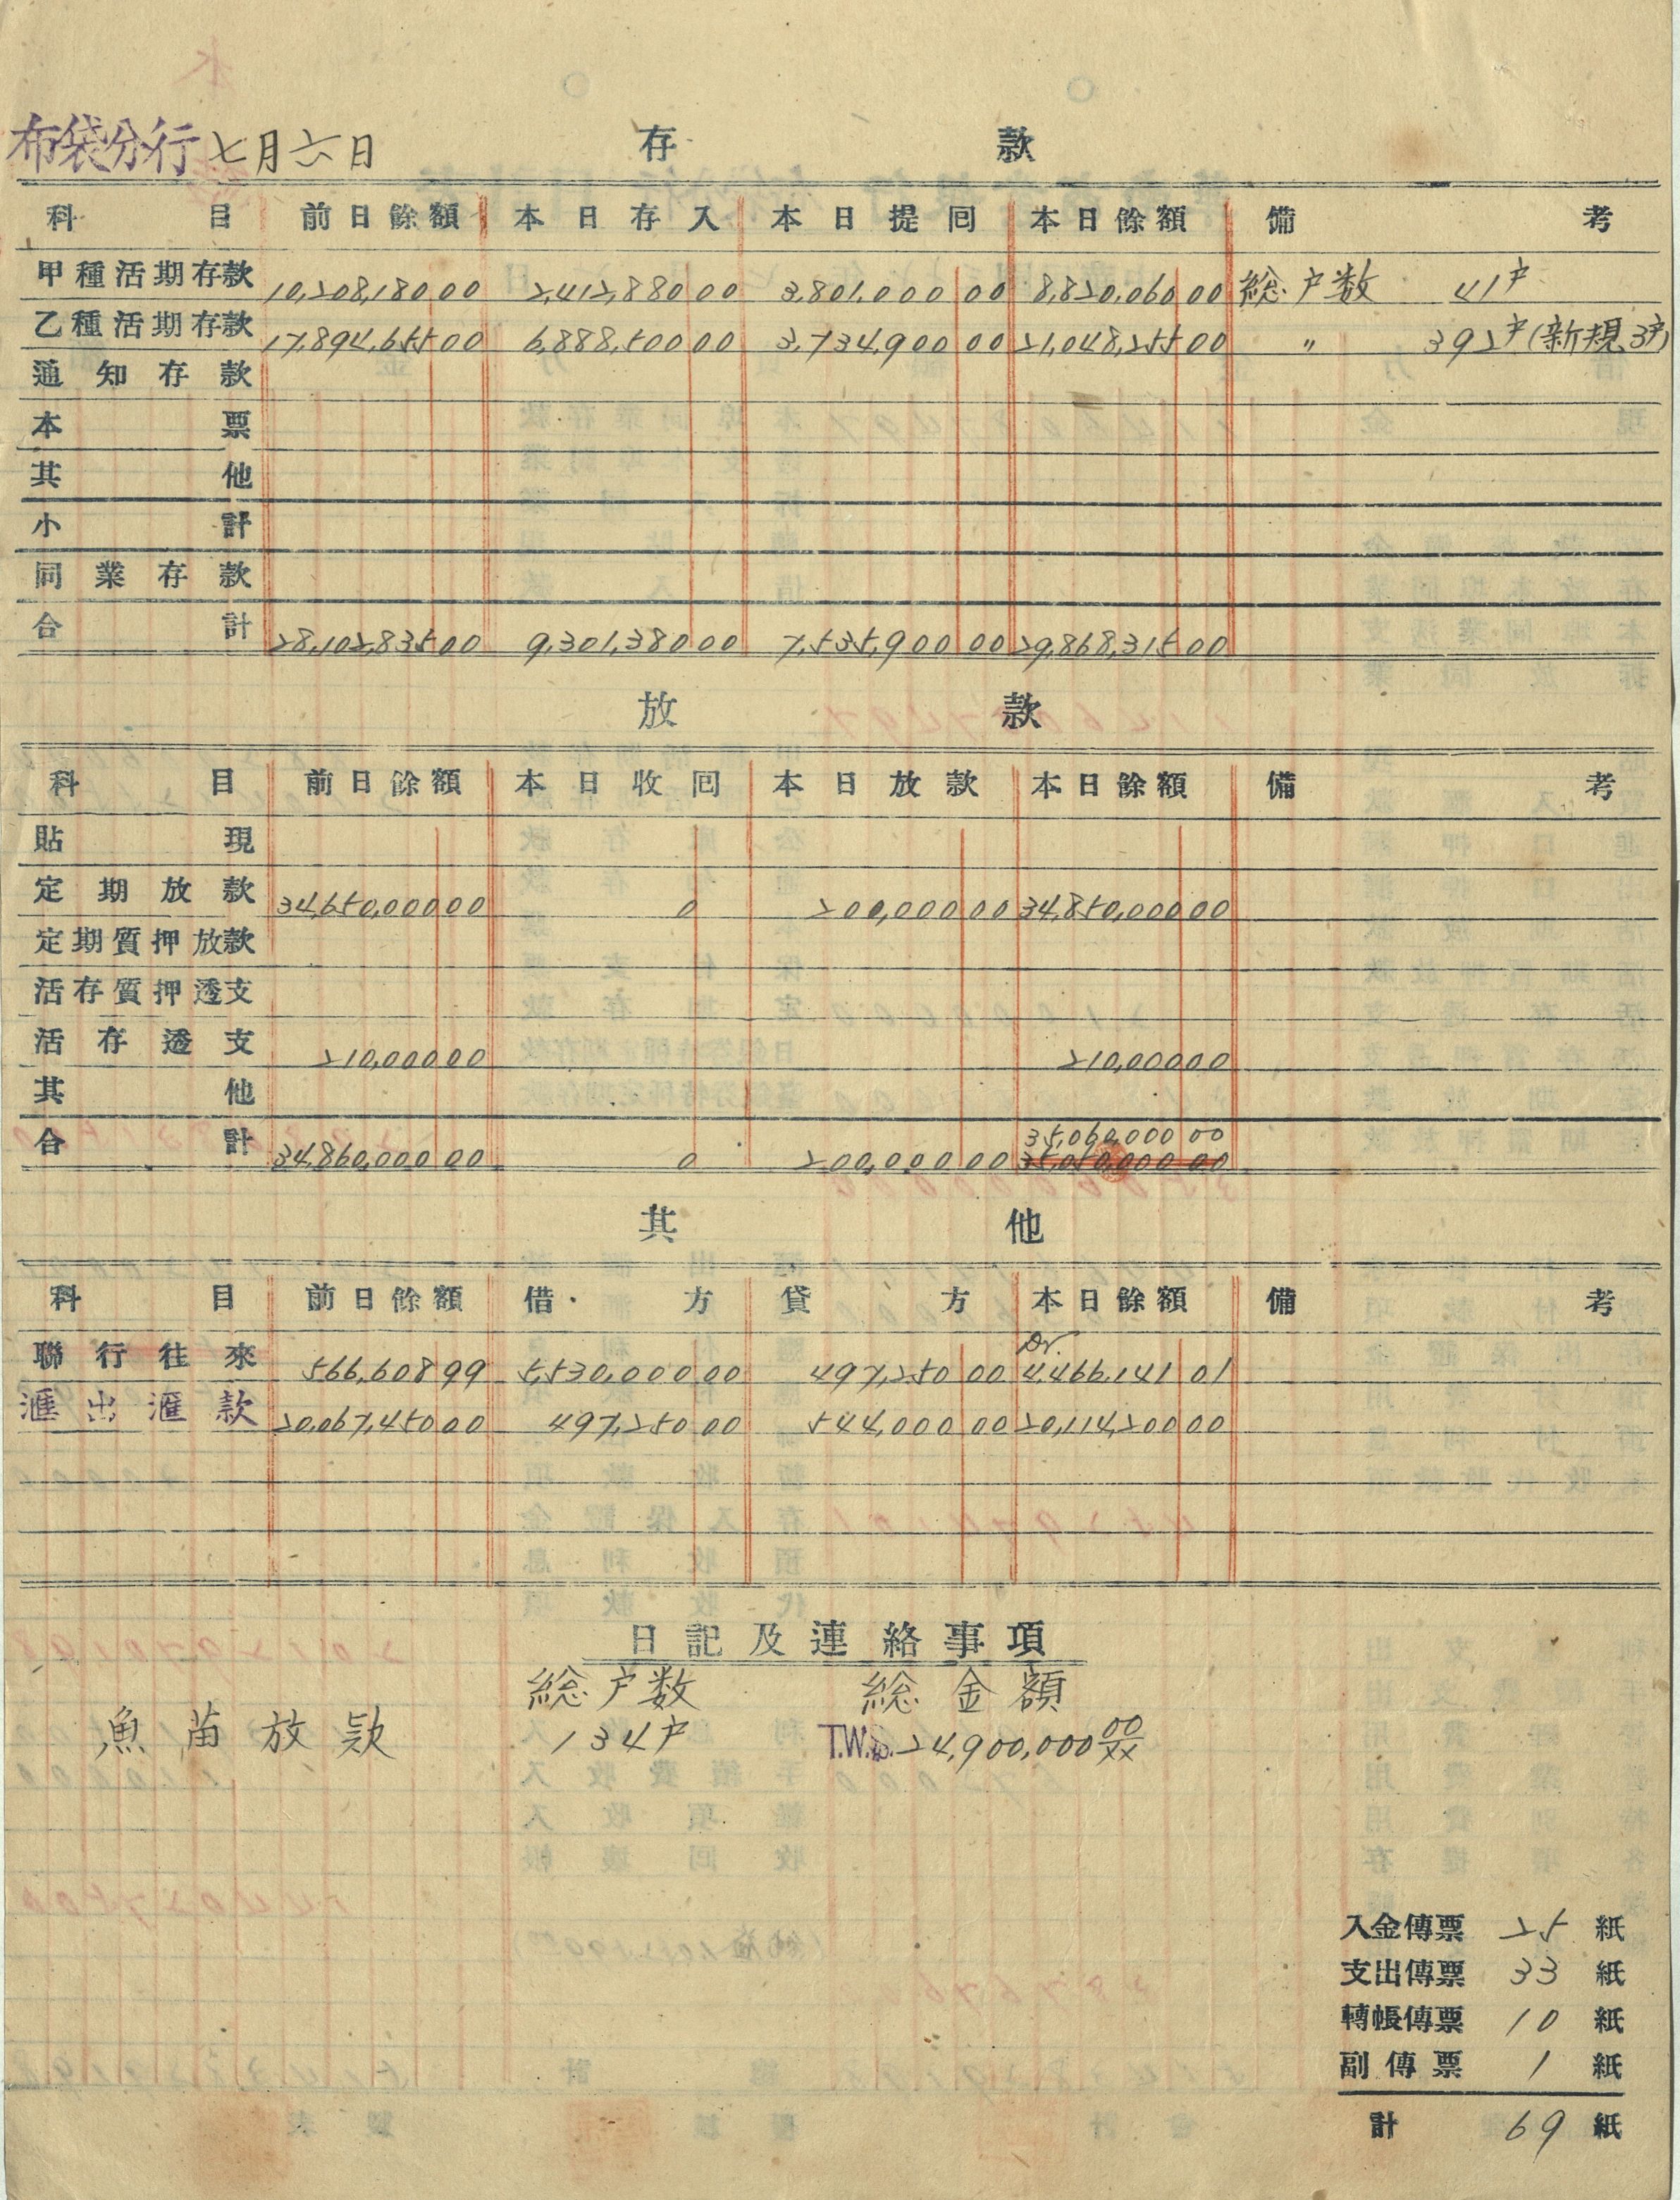 布袋分行 七月六日 存款
科目 前日餘額 本日存入 本日提囘 本日餘額 備考
甲種活期存款 10,208,180 00 2,412,880 00 3,801,000 00 8,820,060 00 総户数 41户
乙種活期存款 17,894,655 00 6,888,500 00 3,734,900 00 21,048,255 00 〃 392户(新規3户)
通知存款
本票
其他
小計
同業存款
合計 28,102,835 00 9,301,380 00 7,535,900 00 29,868,315 00
放款
科目 前日餘額 本日收囘 本日放款 本日餘額 備考
貼現
定期放款 34,650,000 00 0 200,000 00 34,850,000 00
定期質押放款
活存質押透支
活存透支 210,000 00 210,000 00
其他
35,060,000 00
合計 34,860,000 00 0 200,000 00 35,050,000 00
其他
科目 前日餘額 借方 貸方 本日餘額 備考
Dr.
聯行往來 566,608 99 5,530,000 00 497,250 00 4,466,141 01
滙出滙款 20,067,450 00 497,250 00 544,000 00 20,114,200 00
日記及連絡事項
総户数 総金額
魚苗放款 134户 T.W.$. 24,900,000 00/xx
入金傳票 25 紙
支出傳票 33 紙
轉帳傳票 10 紙
副傳票 1 紙
計 69 紙